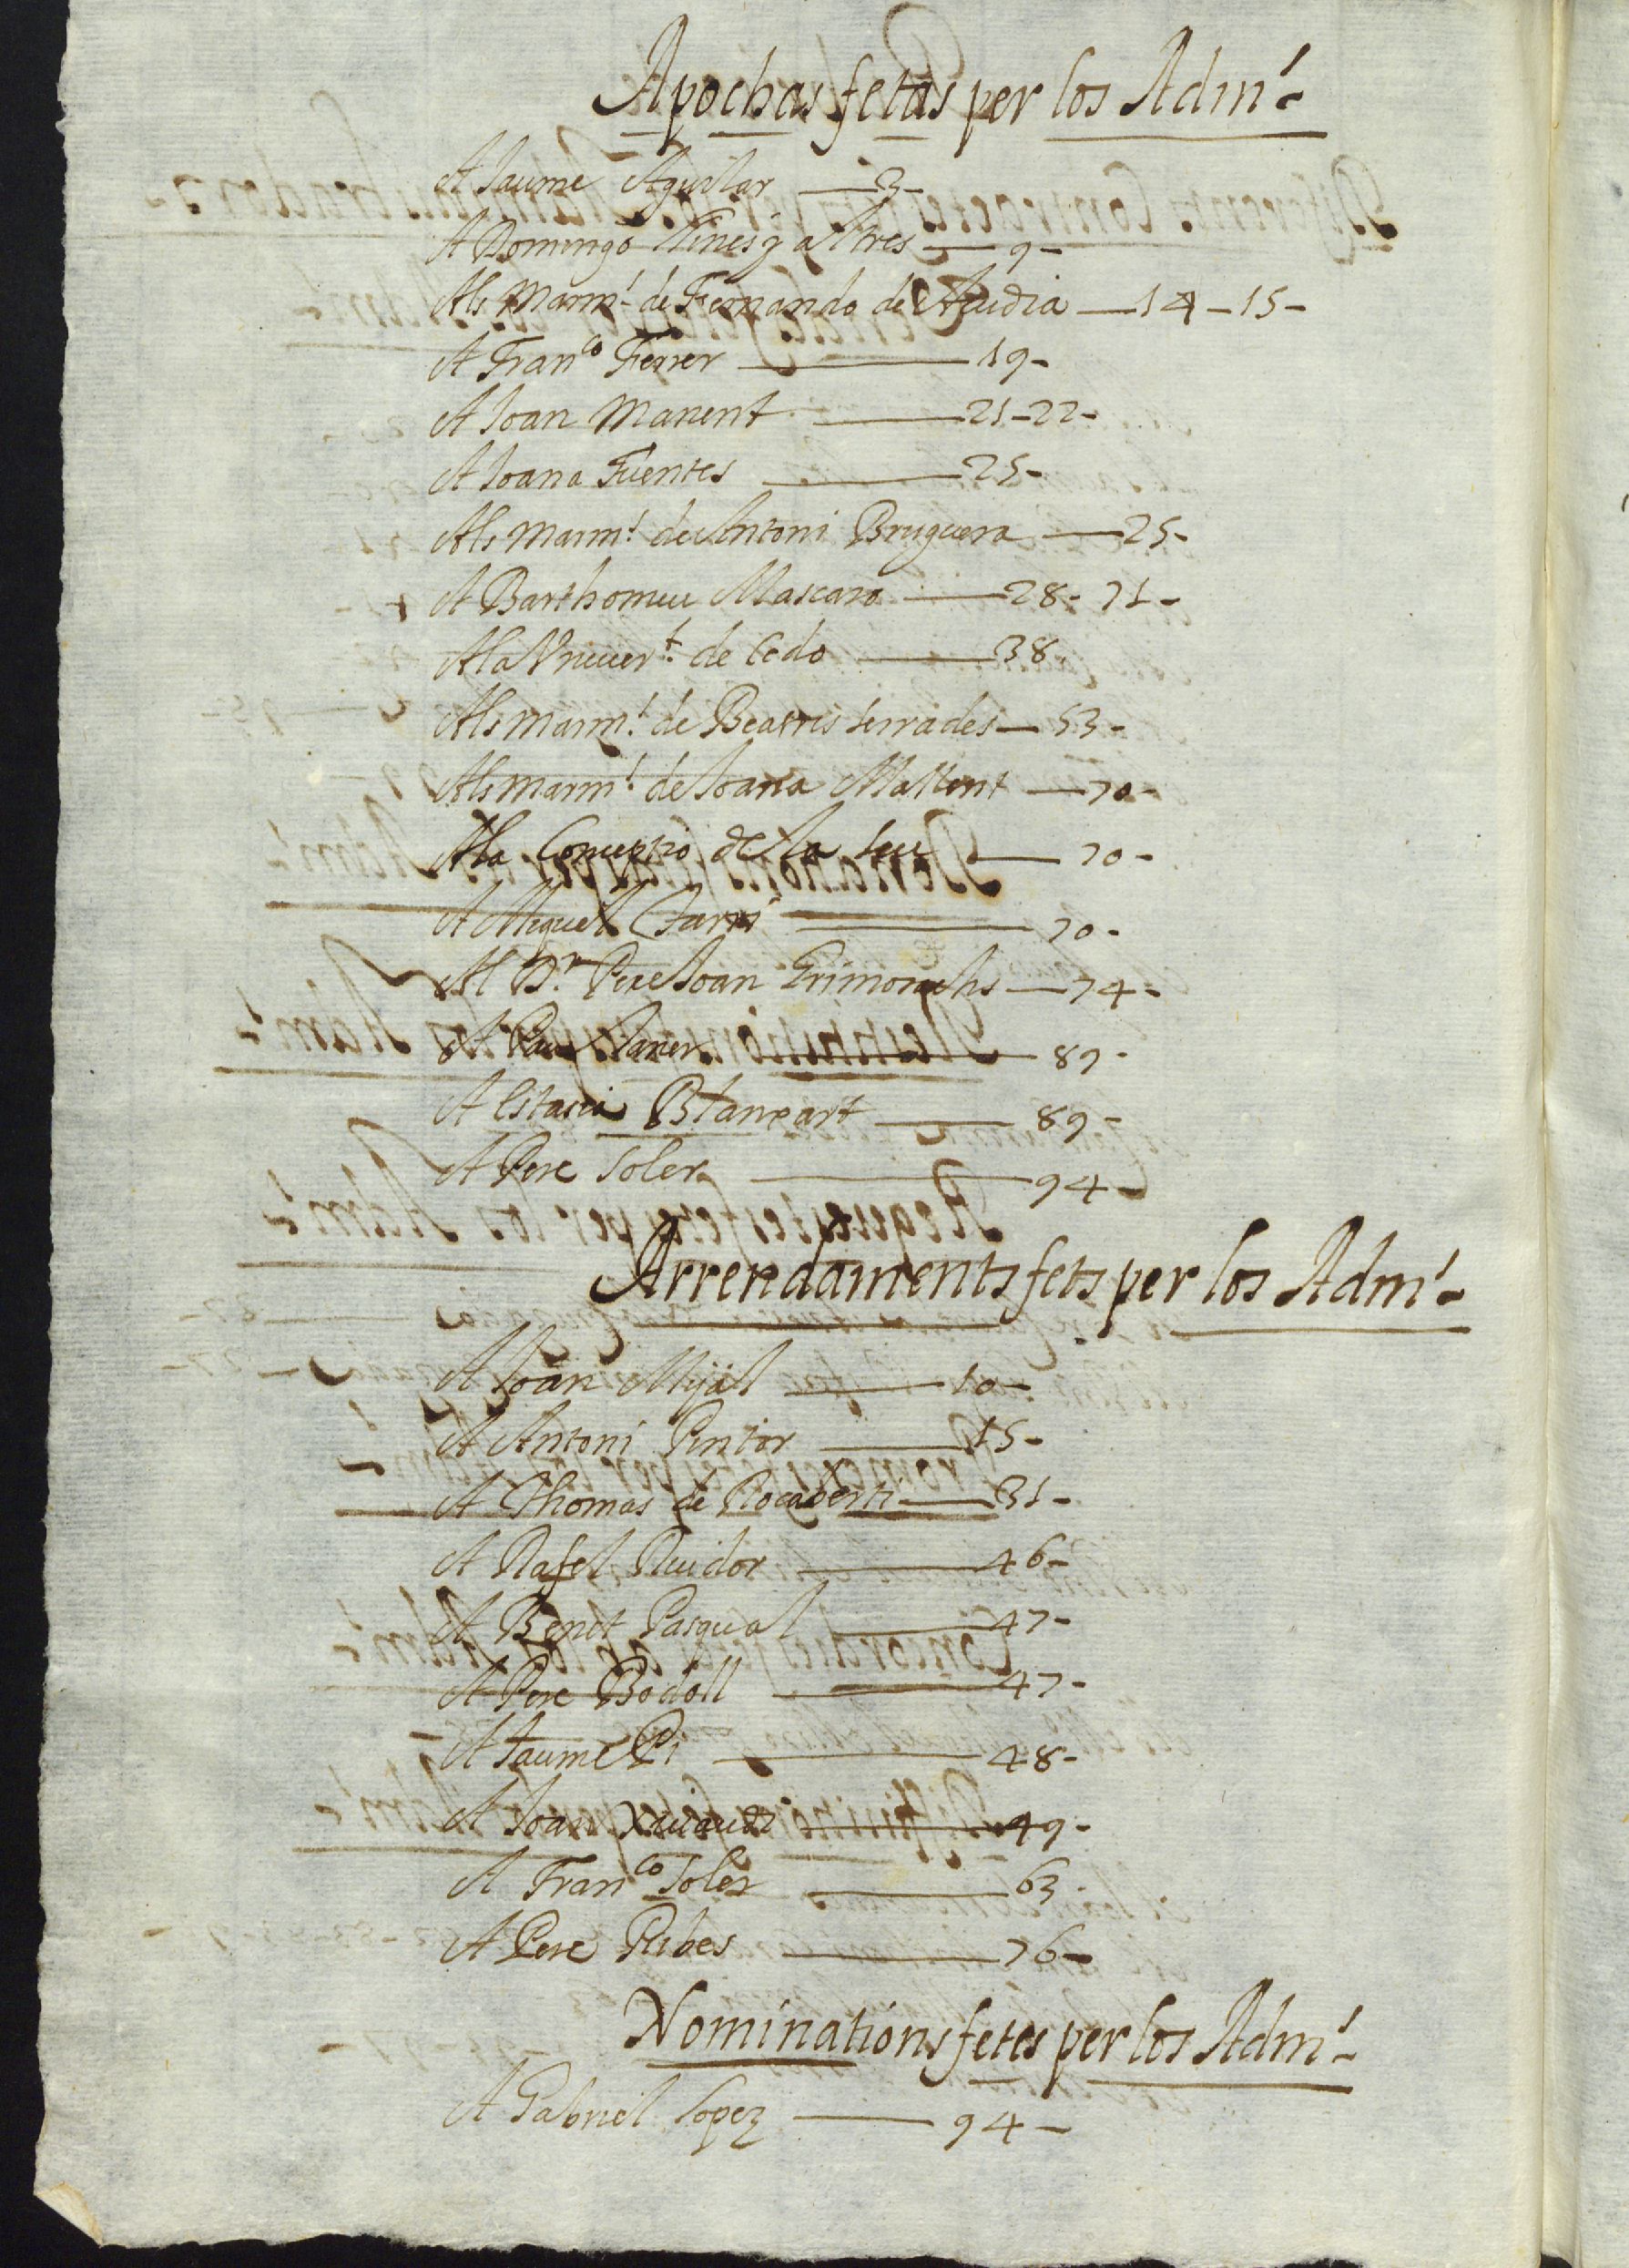 Apochas fetas per los Adm.ˢ
A Jaume Aguilar — 3 -
A Domingo Llines y altres — 9 -
Als Marm.ˢ de Fernando de — 14 - 15 -
A Fran.ᶜᵒ Ferrer — 19 -
A Joan Manent — 21 - 22 -
A Joana Fuentes — 25 -
Als Marm.ˢ de Antoni Bruguera — 25 -
A Barthomeu Mascaro — 28 - 71 -
A la Vniuer.ᵗ de — 38 -
Als Marm.ˢ de Beatris Serrades — 53 -
Als Marm.ˢ de Joana Mallent — 70 -
A la Conceptio de la Seu — 70 -
A Miquel — 70 -
Al D.ʳ Pere Joan Grimorachs — 74 -
A Pau Janer — 89 -
A — 89 -
A Pere Soler — 94 -
Arrendaments fets per los Adm.ˢ
A Joan Mijal — 10 -
A Antoni Pintor — 15 -
A Thomas de Rocaberti — 31 -
A Rafel Ruidor — 46 -
A Benet Pasqual — 47 -
A Pere Bodoll — 47 -
A Jaume Pi — 48 -
A Joan — 49 -
A Fran.ᶜᵒ Soler — 63 -
A Pere Ribes — 76 -
Nominations fetes per los Adm.ˢ
A Gabriel Lopez — 94 -